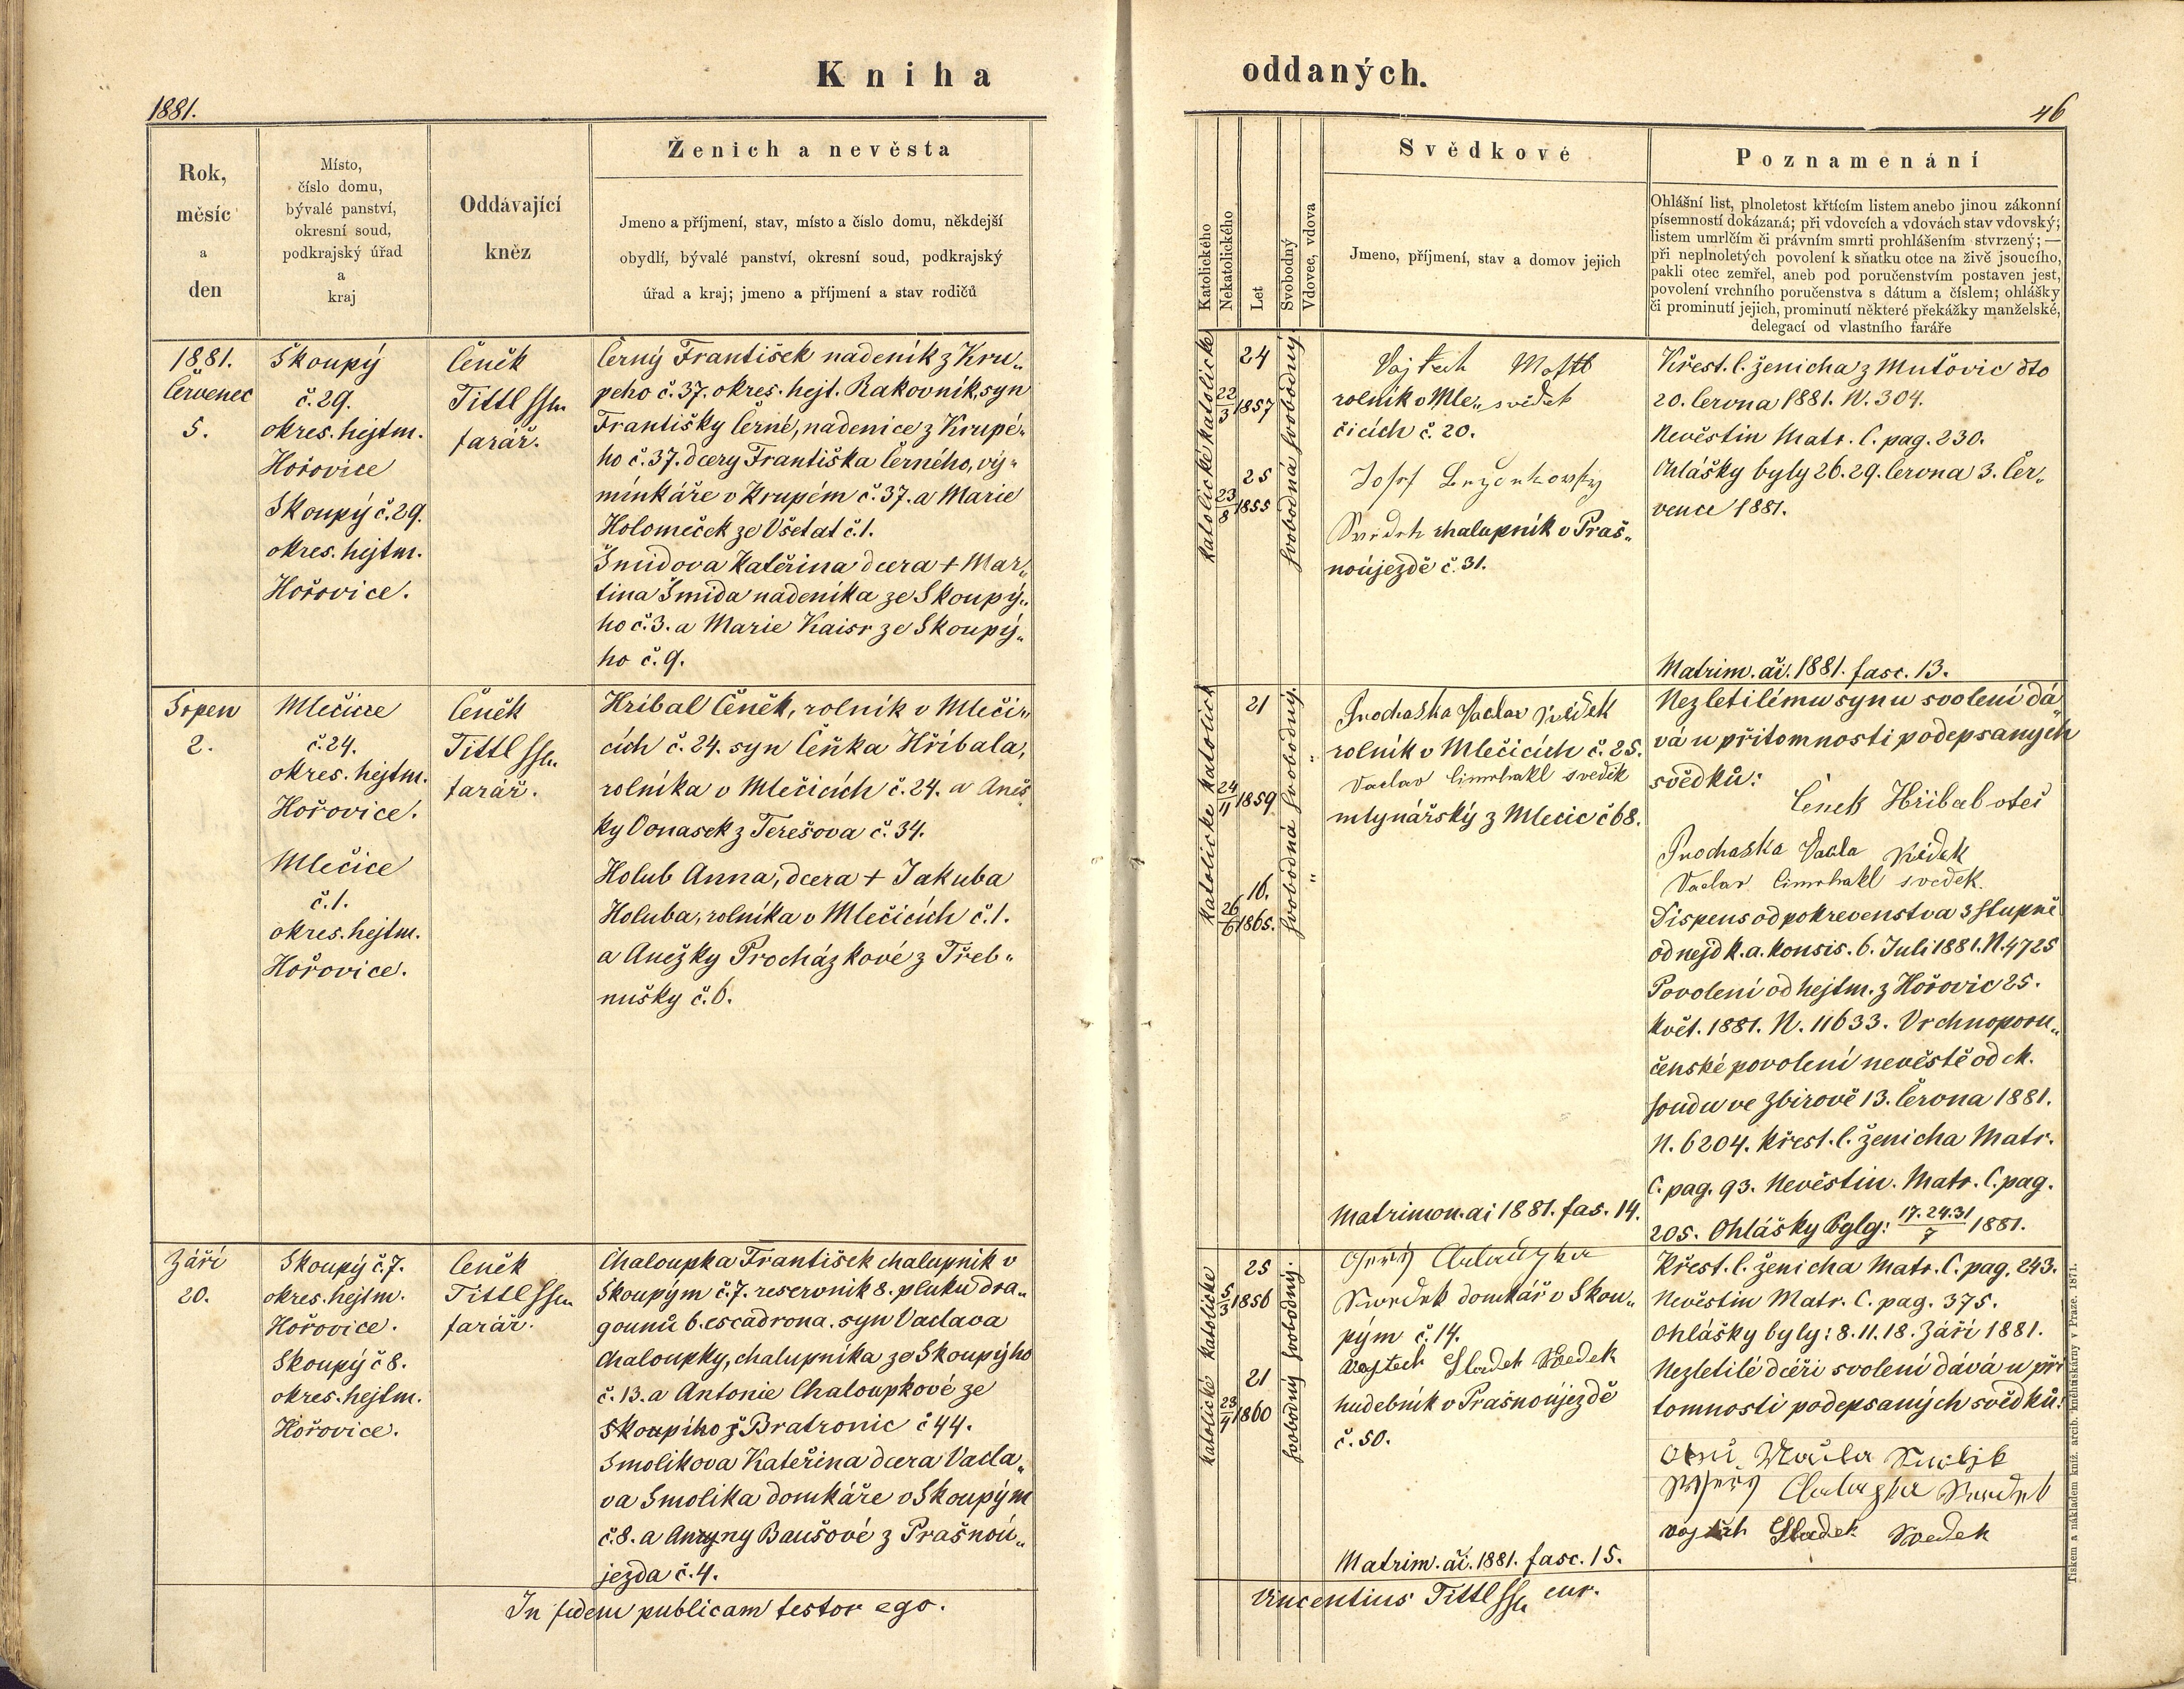 Kniha
1881.
Rok,
měsíc
a
den
Místo,
číslo domu,
bývalé panství,
okresní soud,
podkrajský úřad
a
kraj
Oddávající
kněz
Ženich a nevěsta
Jmeno a příjmení, stav, místo a číslo domu, někdejší
obydlí, bývalé panství, okresní soud, podkrajský
úřad a kraj; jmeno a příjmení a stav rodičů
1881.
Červenec
5.
Skoupý
č. 29.
okres. hejtm.
Hořovice
Skoupý č. 29.
okres. hejtm.
Hořovice.
Čeněk
Tittl
farář.
Černý František nadeník z Kru„
peho č. 37. okres. hejt. Rakovník, syn
Františky Černé, nadenice z Krupé„
ho č. 37. dcery Františka Černého, vý„
minkáře v Krupém č. 37. a Marie
Holomeček ze Všetat č. 1.
Šmidova Kateřina dcera + Mar„
tina Šmida nadeníka ze Skoupý„
ho č. 3. a Marie Kaisr ze Skoupý„
ho č. 9.
Srpen
2.
Mlečice
č. 24.
okres. hejtm.
Hořovice.
Mlečice
č. 1.
okres. hejtm.
Hořovice.
Čeněk
Tittl
farář.
Hribal Čeněk, rolník v Mleči„
cích č. 24. syn Čeňka Hříbala,
rolníka v Mlečicích č. 24. a Aneš
ky Vonasek z Terešova č. 34.
Holub Anna, dcera + Jakuba
Holuba, rolníka v Mlečicích č. 1.
a Anežky Procházkové z Třeb„
nušky č. 6.
Záři
20.
Skoupý č. 7.
okres. hejtm.
Hořovice.
Skoupý č 8.
okres. hejtm.
Hořovice.
Čeněk
Tittl
farář.
Chaloupka František chalupník v
Skoupým č. 7. reservnik 8. pluku dra„
gounů 6. escadrona. syn Vaclava
Chaloupky, chalupníka ze Skoupýho
č. 13. a Antonie Chaloupkové ze
Skoupiho z Bratronic č 44.
Smolikova Kateřina dcera Vacla„
va Smolika domkáře v Skoupým
č. 8. a Baušové z Prašnoú„
jezda č. 4.
In fidem publicam testor ego.
oddaných.
46
Katolického
Nekatolického
Let
Svobodný
Vdovec, vdova
Svědkové
Jmeno, příjmení, stav a domov jejich
Poznamenání
Ohlášní list, plnoletost křtícím listem anebo jinou zákonní
písemností dokázaná; při vdovcích a vdovách stav vdovský;
listem umrlčím či právním smrti prohlášením stvrzený; —
při neplnoletých povolení k sňatku otce na živě jsoucího,
pakli otec zemřel, aneb pod poručenstvím postaven jest,
povolení vrchního poručenstva s dátum a číslem; ohlášky
či prominutí jejich, prominutí některé překážky manželské,
delegací od vlastního faráře
katolické katolické
24
22/3 1857
25
23/8 1855
svobodná svobodný
Vojtech
rolník v Mle„ svědek
čicích č. 20.
Josef
chalupník v Praš„
noújezdě č. 31.
Křest. l. ženicha z Mutovic dto
20. Června 1881. N. 304.
Nevěstin Matr. C. pag. 230.
Ohlášky byly 26. 29. Června 3. Čer„
vence 1881.
Matrim. ai. 1881. fasc. 13.
katolické katolick
21
24/11 1859
16.
26/6 1865.
svobodná svobodný.
Prochaska Vaclav svědek
rolník v Mlečicích č. 25.
Vaclav Cimrhakl svedek
mlynářský z Mlecic č 68.
Matrimon. ai 1881. fas. 14.
Nezletilému synu svolení dá„
vá u přitomnosti podepsanych
svědků:
Čeněk Hřibal otec
Prochaska Vacla
Vaclav Cimrhakl svedek.
Dispens od pokrevenstva 3 stupně
od nejd k. a. konsis. 6. Juli 1881. N. 4725
Povolení od hejtm. z Hořovic 25.
květ. 1881. N. 11633. Vrchnoporu„
čenské povolení nevěstě od ck.
soudu ve Zbirově 13. Června 1881.
N. 6204. Křest. l. ženicha Matr.
C. pag. 93. Nevěstin. Matr. C. pag.
205. Ohlášky byly: 17. 24. 31/7 1881.
katolické katolické
25
5/3 1856
21
23/4 1860
svobodný svobodný.
domkář v Skou„
pým č. 14.
Vojtech Sladek Svedek
hudebník v Prašnoújezdě
č. 50.
Matrim. ai. 1881. fasc. 15.
Křest. l. ženicha Matr. C. pag. 243.
Nevěstin Matr. C. pag. 375.
Ohlášky byly: 8. 11. 18. Září 1881.
Nezletilé dceři svolení dává u pří
tomnosti podepsaných svědků:
Vojtech Sladek Svedek
Vincentius Tittl cur.
Tiskem a nákladem kníž. arcib. knihtiskárny v Praze. 1871.